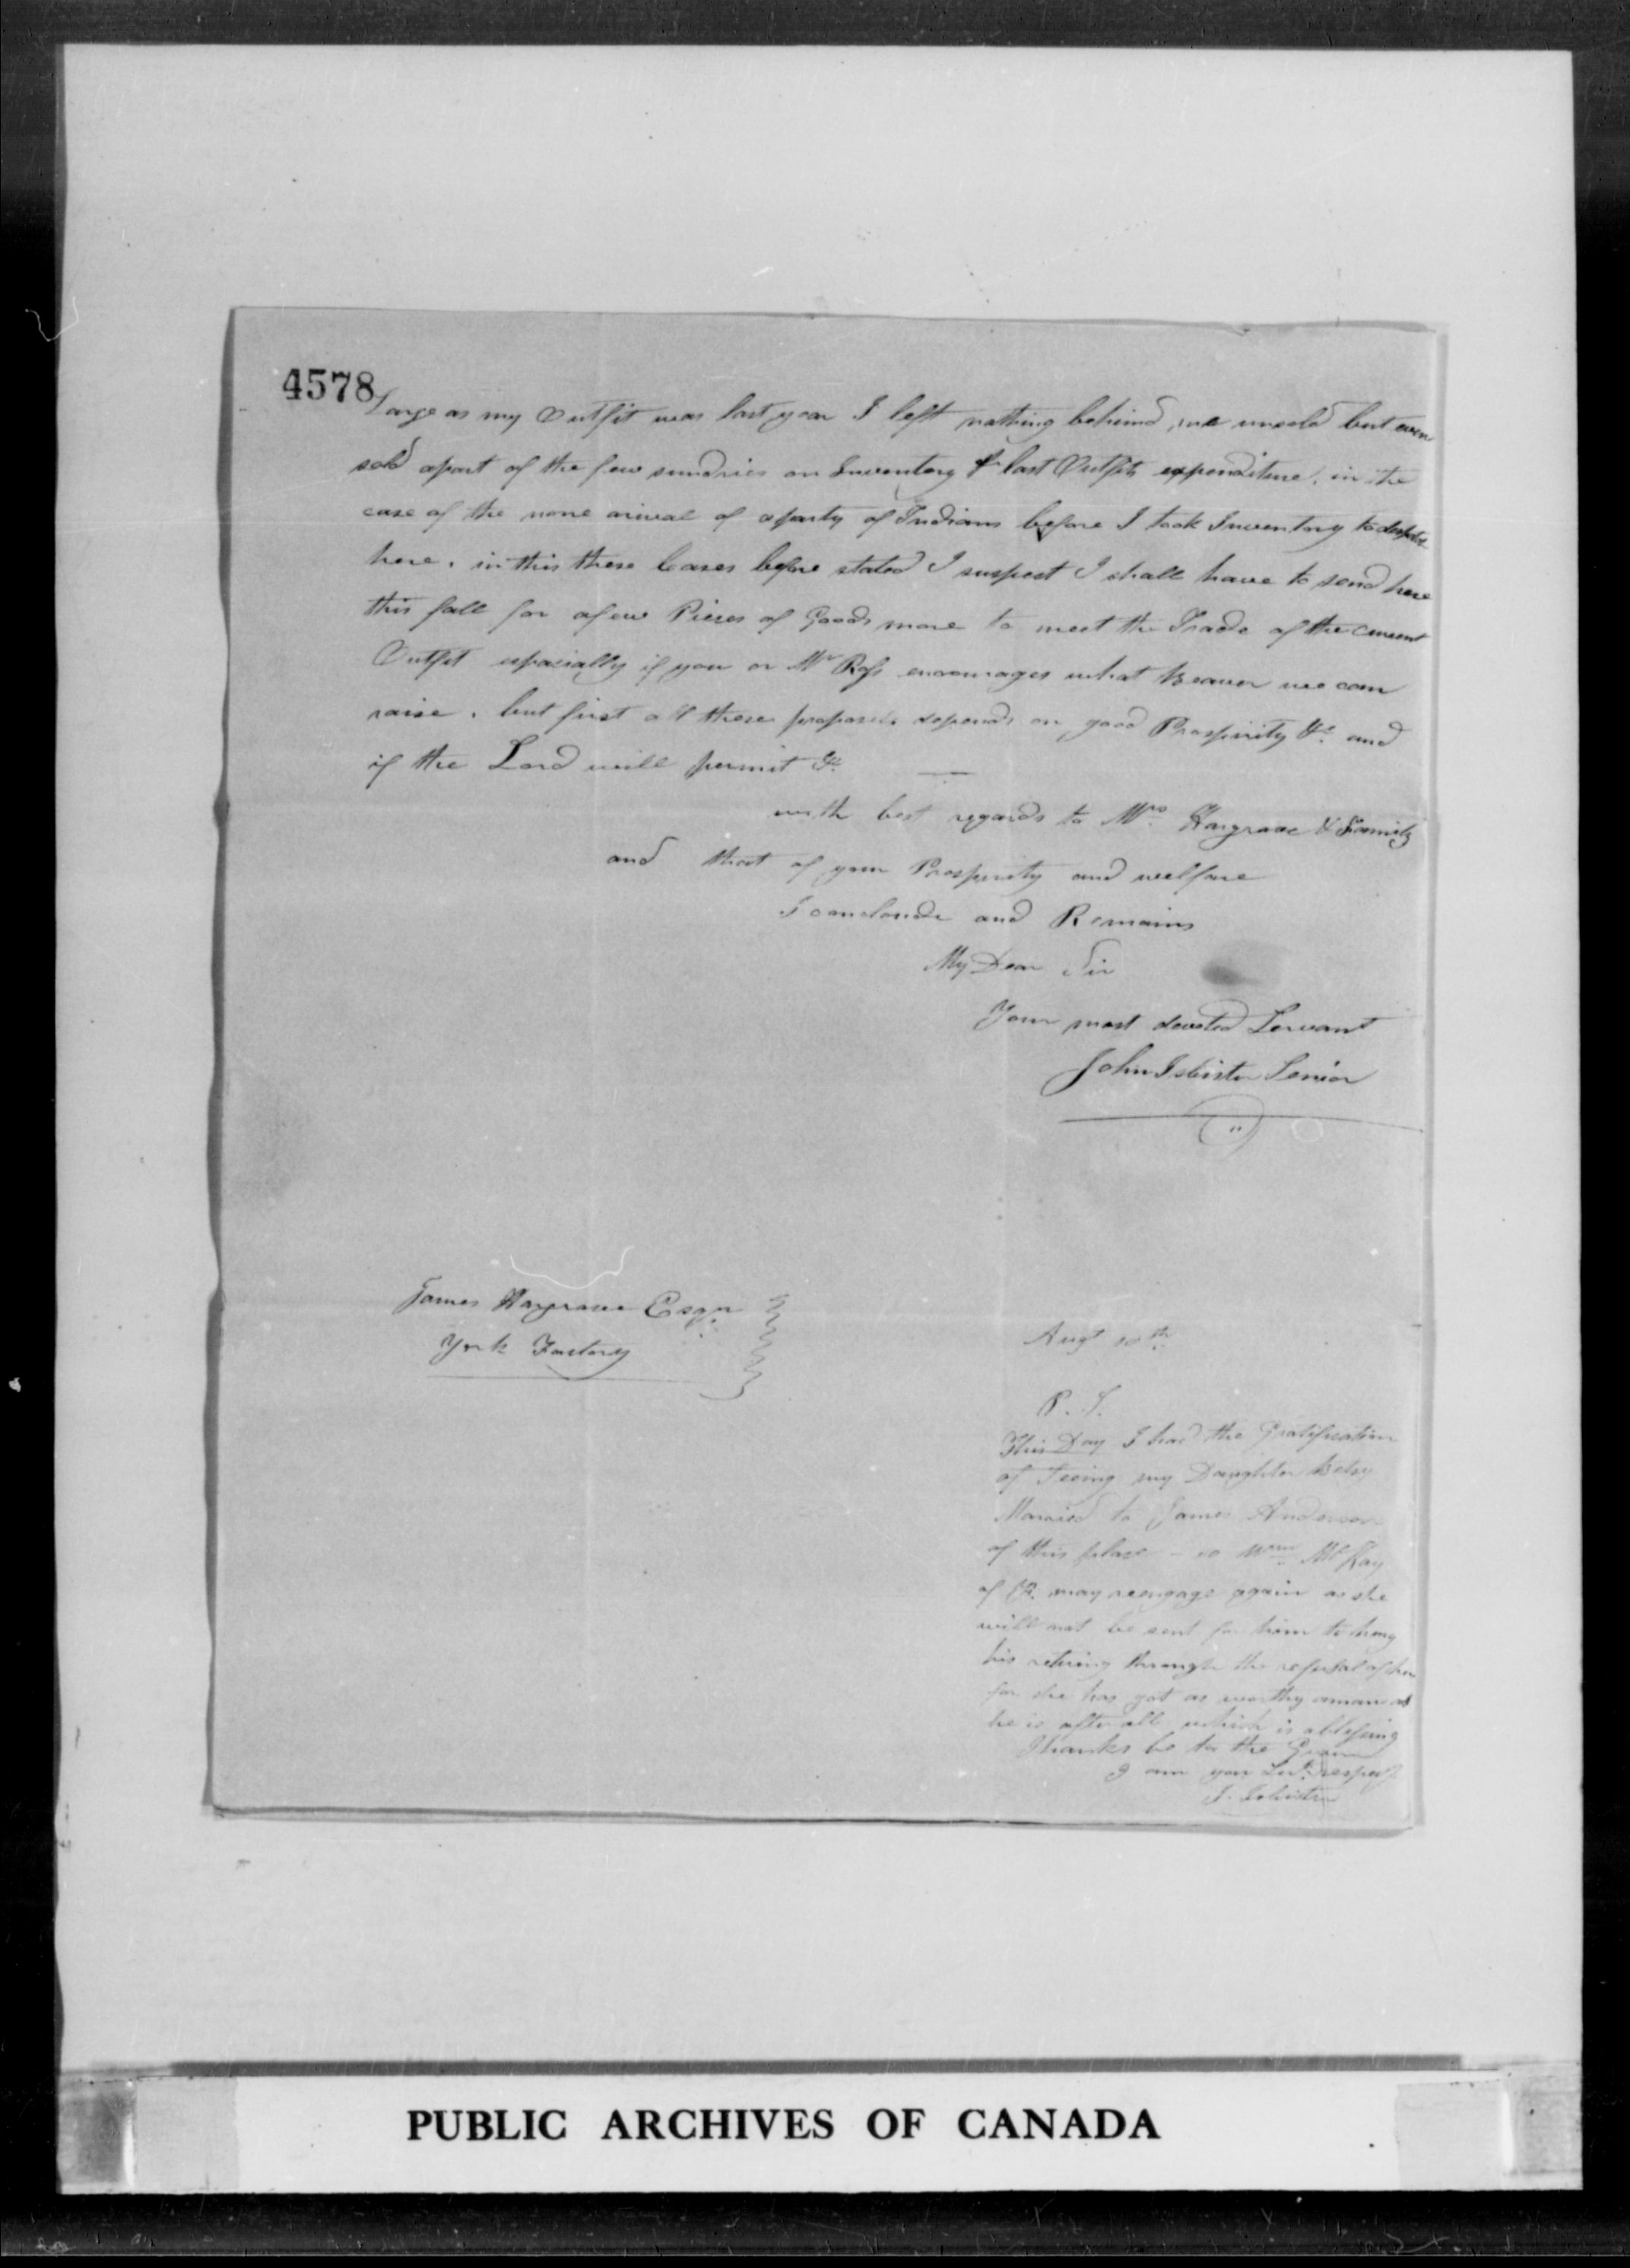 4578
Large as my Outfit was last year I left nothing behind me unsold but even
sold apart of the few sundries on Inventory & last Outfits expenditure, in the
case of the none arival of aparty of Indians before I took Inventory to
here. in this these Cases before stated I suspect I shall have to send here
this fall for afew Pieses of Goods more to meet the Trade of the Current
Outfit espasially if you or Mr Ross encourages what Beaver we can
raise. but first all these proposels depends on good Prospirity &c. and
if the Lord will permit &c.
with best regards to Mrs. Hargrave & Family
and that of your Prosperity and welfare
I concloude and Remains
My Dear Sir
Your most devoted Servant
John Isbister Senior
James Hargrave Esqr.
York Factory
Augt 10th.
P. S.
This Day I had the Gratification
of Seeing my Daughter Betsy
Maraied to James Anderson
of this plase - so Wm McKay
of may reengage again as she
will not be sent for him to
his retiring through the refusal of her
for she has got as worthy aman as
he is after all which is ablessing
Thanks be to the
I am your Svt. respecy
J. Isbister
PUBLIC ARCHIVES OF CANADA